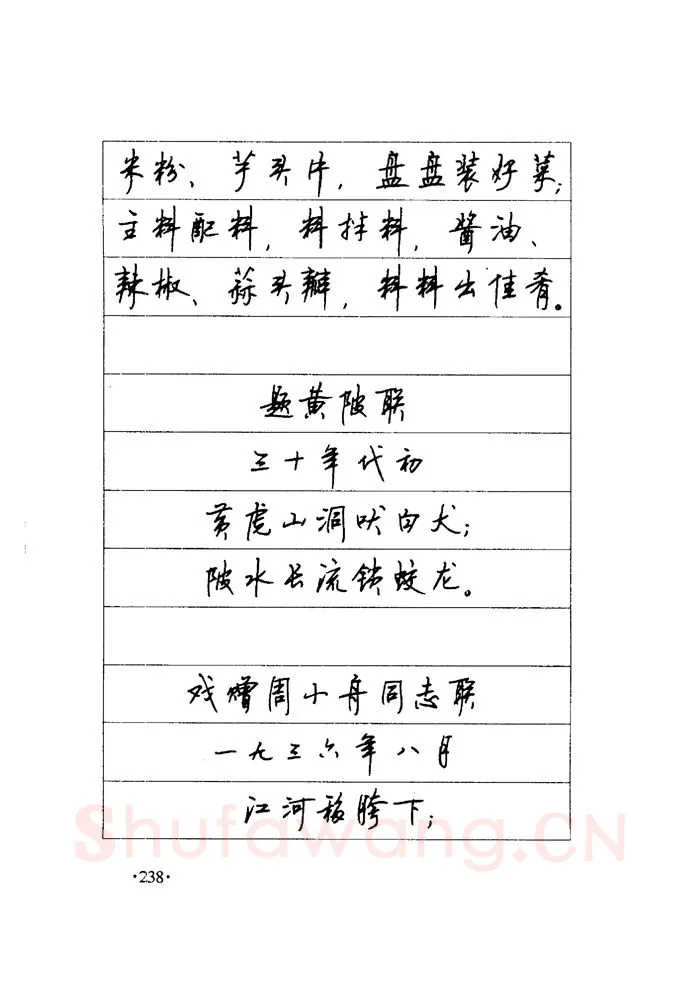 米粉、芋头片，盘盘装好菜；
主料配料，料拌料，酱油、
辣椒、蒜头瓣，料料出佳肴。
题黄陂联
三十年代初
黄虎山洞吠白犬；
陂水长流锁蛟龙。
戏赠周小舟同志联
一九三六年八月
江河移胯下；
Shufawang.CN
·238·